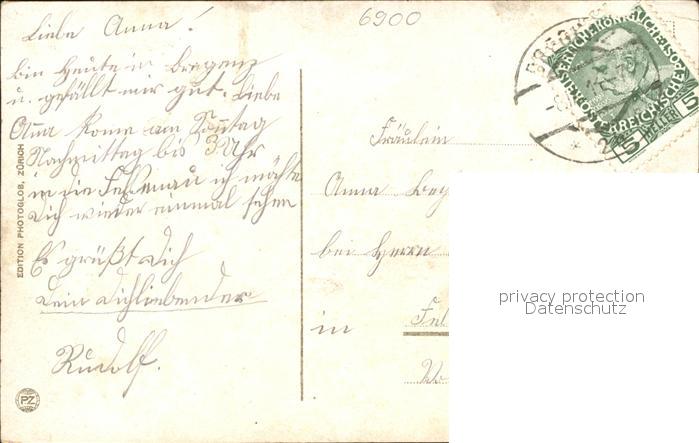 6900
Liebe Anna!
bin Heute in Bregenz
u. gefällt mir gut. Liebe
Anna kome am Sonntag
Nachmittag bis 3 Uhr
in die Felsenau ich möchte
Dich wieder einmal sehen
Es grüßt Dich
Dein Dichliebender
Rudolf.
EDITION PHOTOGLOB, ZÜRICH
PZ
Fräulein
Anna
bei Herrn
in Fel
Vo
BREGENZ
5 HELLER 5
privacy protection
Datenschutz